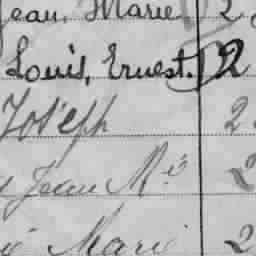 Jean, Marie 2
Louis, Ernest. 2
Joseph 2
Jean Mie 2
Marie 2